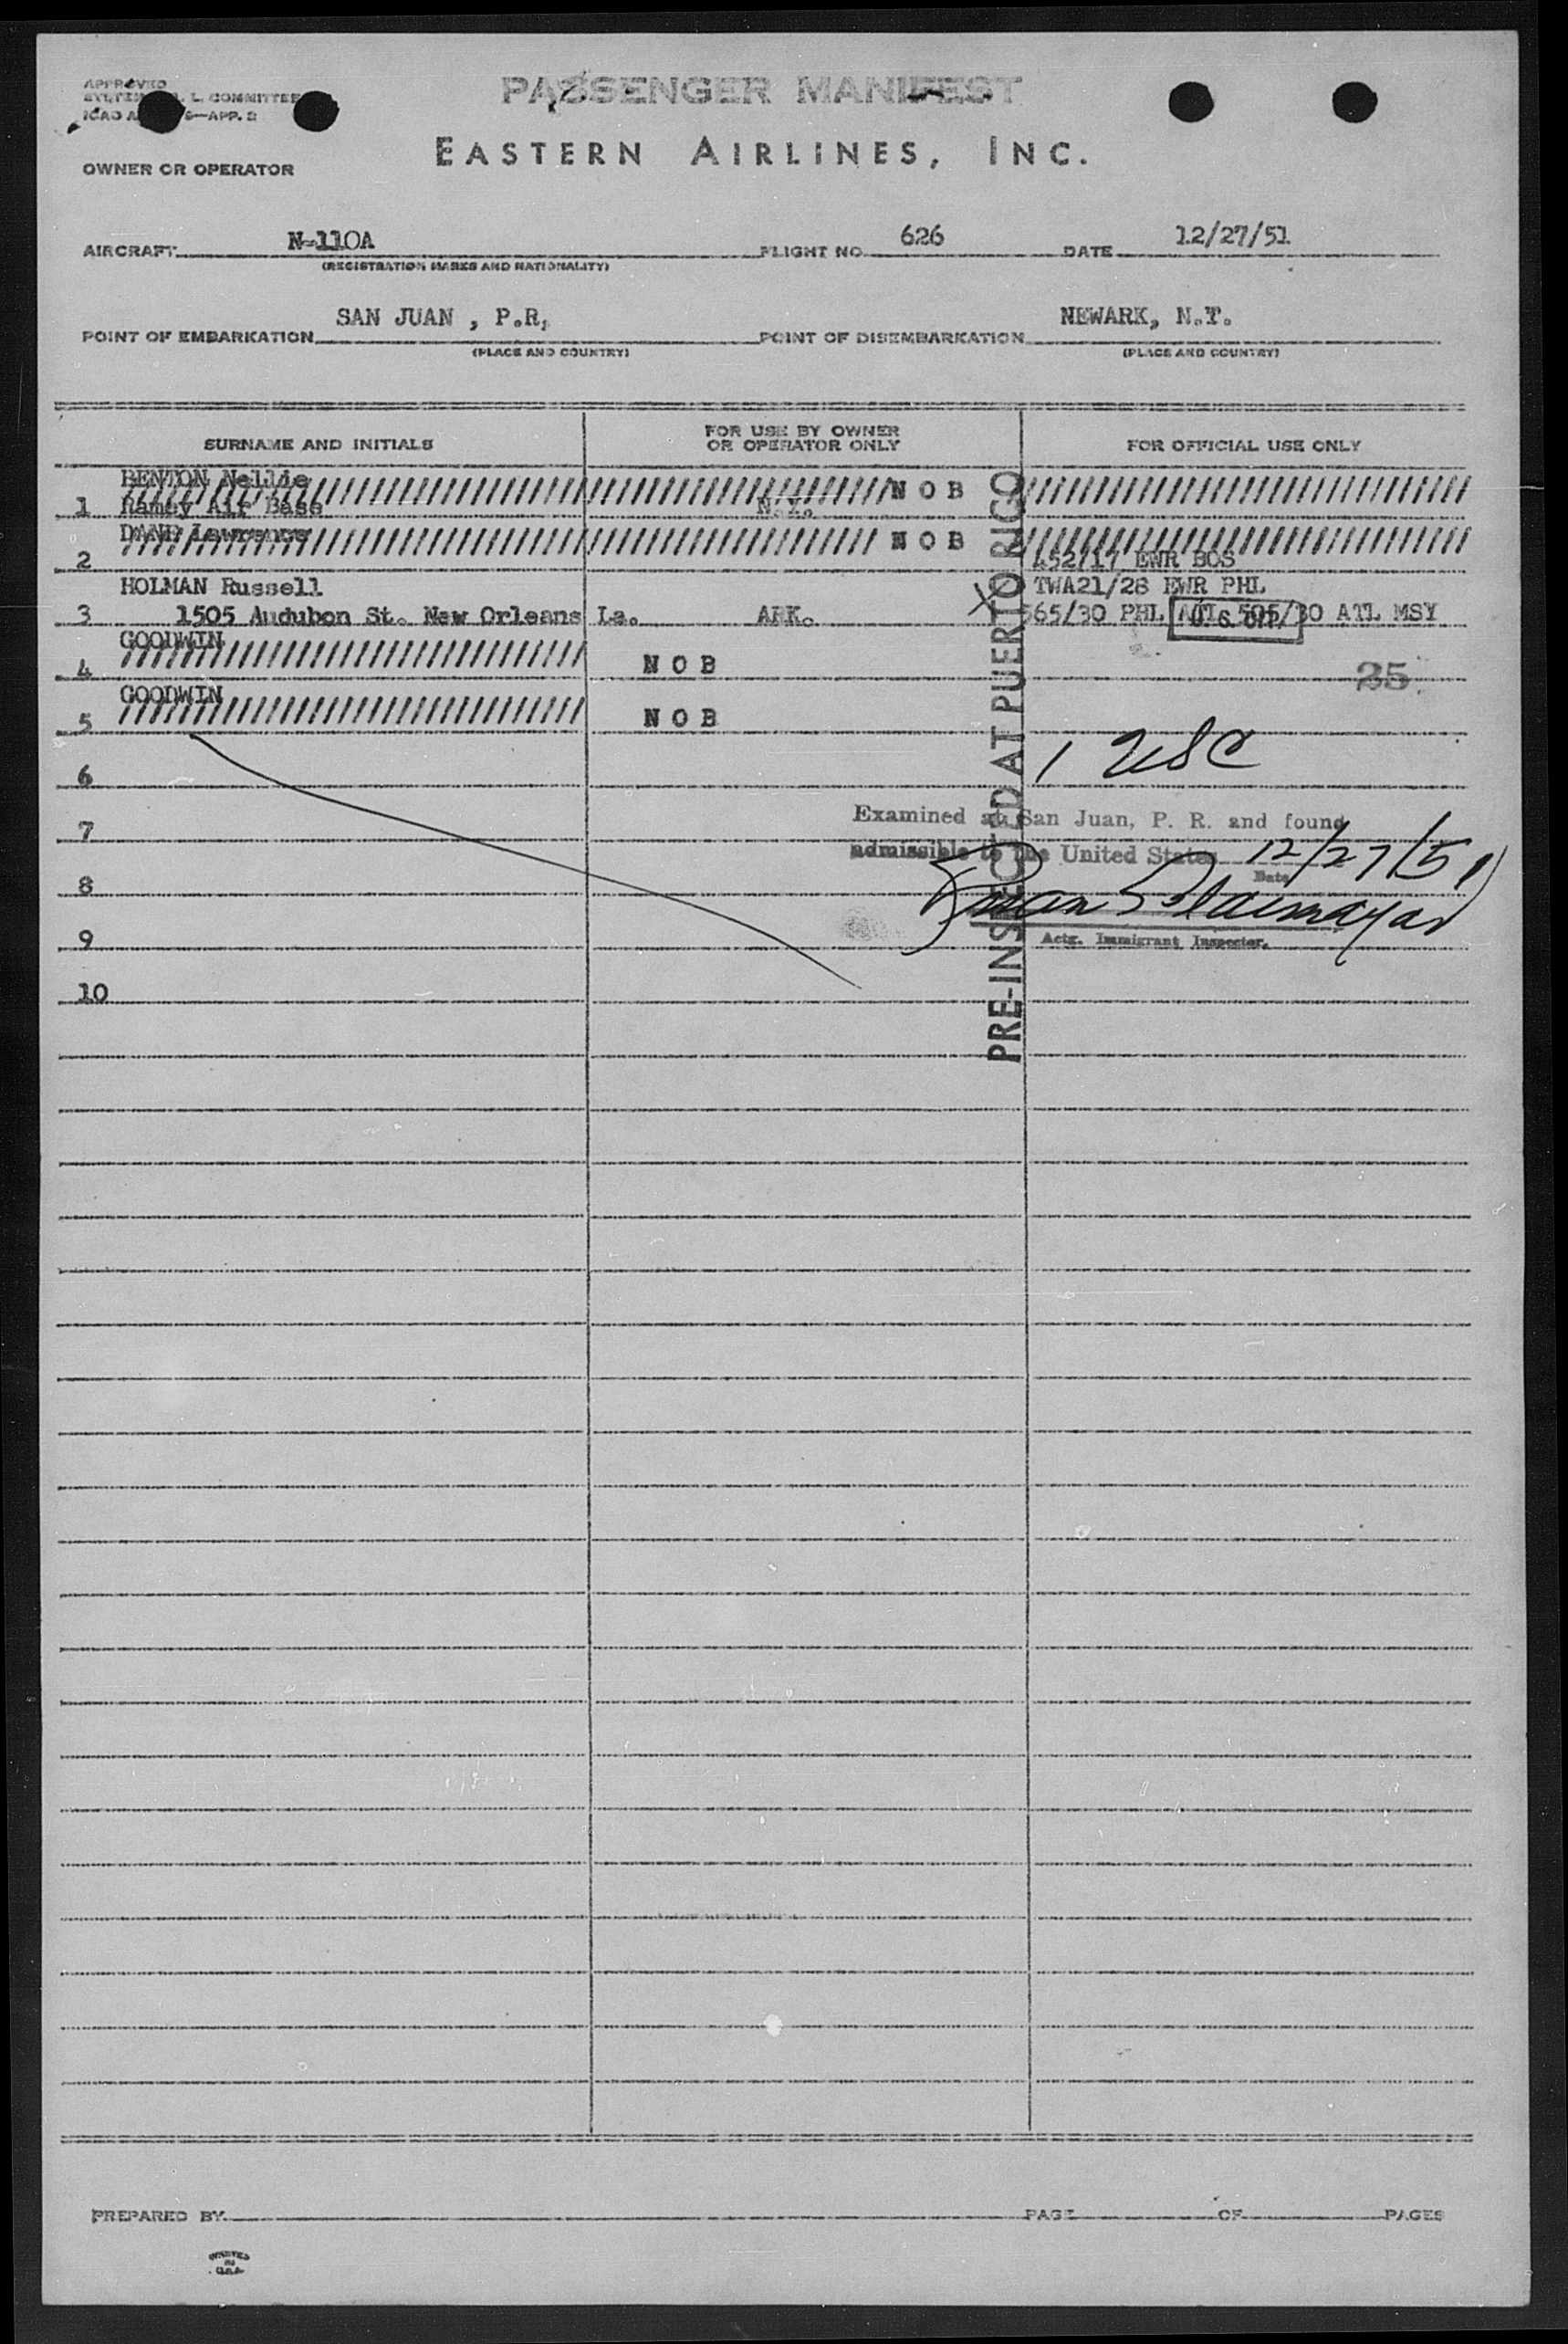 PASSENGER MANIFEST
APPROVED
COMMITTEE
—APP. 2
EASTERN AIRLINES, INC.
OWNER OR OPERATOR
AIRCRAFT N-110A FLIGHT NO. 626 DATE 12/27/51
(REGISTRATION MARKS AND NATIONALITY)
POINT OF EMBARKATION SAN JUAN , P.R, POINT OF DISEMBARKATION NEWARK, N.T.
(PLACE AND COUNTRY) (PLACE AND COUNTRY)
SURNAME AND INITIALS FOR USE BY OWNER OR OPERATOR ONLY FOR OFFICIAL USE ONLY
BENTON Nellie N O B
1 Ramey Air Base N.Y.
Lawrence N O B
2 452/17 EWR BOS
HOLMAN Russell TWA21/28 EWR PHL
3 1505 Audubon St. New Orleans La. ARK. X 565/30 PHL ATL 505/30 ATL MSY
U.S. CIT.
GOODWIN
4 N O B 25
GOODWIN
5 N O B
6 1 USC
Examined at San Juan, P. R. and found
7
admissible to the United States 12/27/51
Date
8
Actg. Immigrant Inspector.
9
10
PRE-INSPECTED AT PUERTO RICO
PREPARED BY PAGE OF PAGES